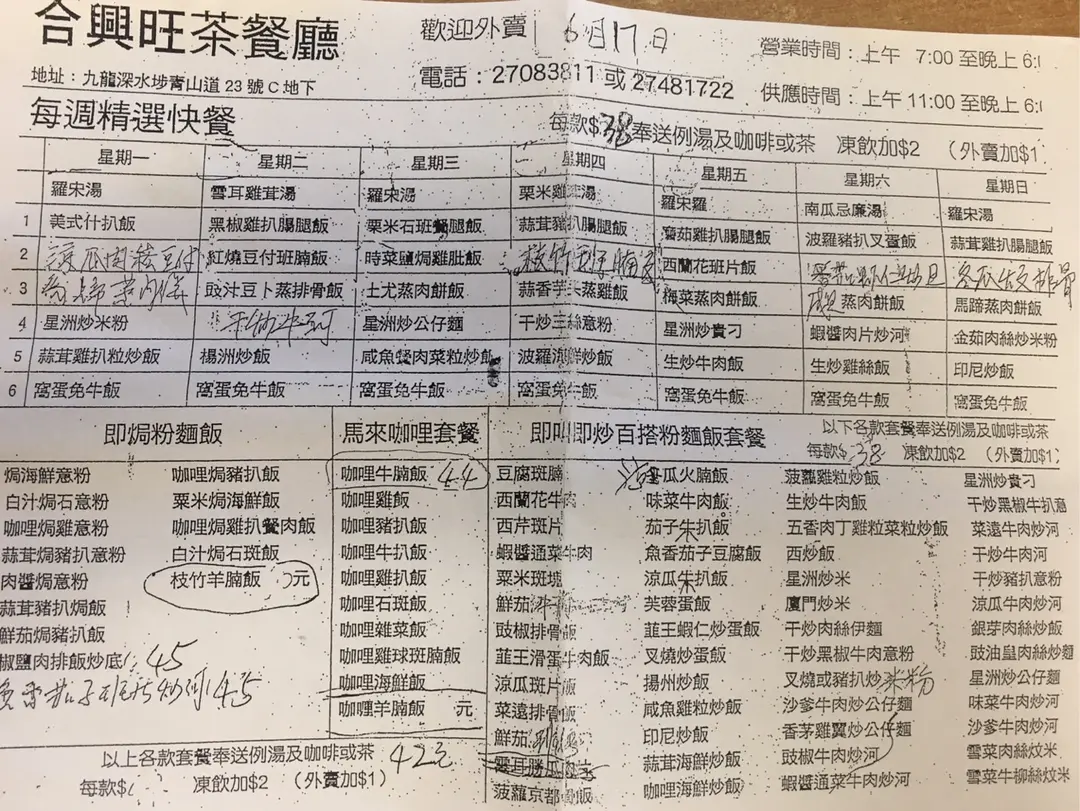 合興旺茶餐廳
歡迎外賣 6月17日
營業時間：上午 7:00 至晚上 6:
地址：九龍深水埗青山道 23 號 C 地下
電話：27083811 或 27481722
供應時間：上午 11:00 至晚上 6:
每週精選快餐
每款$38奉送例湯及咖啡或茶 凍飲加$2 （外賣加$1
星期一 星期二 星期三 星期四 星期五 星期六 星期日
羅宋湯 雪耳雞茸湯 羅宋湯 栗米雞 湯 羅宋羅 南瓜忌廉湯 羅宋湯
1 美式什扒飯 黑椒雞扒腸腿飯 栗米石班餐腿飯 蒜茸豬扒腸腿飯 蘑茹雞扒腸腿飯 波羅豬扒叉蛋飯 蒜茸雞扒腸腿飯
2 涼瓜肉 豆付 紅燒豆付班腩飯 時菜鹽焗雞肶飯 枝竹 西蘭花班片飯
3 豉汁豆卜蒸排骨飯 土尤蒸肉餅飯 蒜香芋头蒸雞飯 梅菜蒸肉餅飯 蒸肉餅飯 馬蹄蒸肉餅飯
4 星洲炒米粉 干炒牛河 星洲炒公仔麵 干炒三絲意粉 星洲炒貴刁 蝦醬肉片炒河 金茹肉絲炒米粉
5 蒜茸雞扒粒炒飯 楊洲炒飯 咸魚餐肉菜粒炒飯 波羅海鮮炒飯 生炒牛肉飯 生炒雞絲飯 印尼炒飯
6 窩蛋免牛飯 窩蛋免牛飯 窩蛋免牛飯 窩蛋免牛飯 窩蛋免牛飯 窩蛋免牛飯 窩蛋免牛飯
即焗粉麵飯
焗海鮮意粉 咖哩焗豬扒飯
白汁焗石意粉 粟米焗海鮮飯
咖哩焗雞意粉 咖哩焗雞扒餐肉飯
蒜茸焗豬扒意粉 白汁焗石斑飯
肉醬焗意粉 枝竹羊腩飯 元
蒜茸豬扒焗飯
鮮茄焗豬扒飯
椒鹽肉排飯炒底 45
魚香茄子班片炒河 45
馬來咖哩套餐
咖哩牛腩飯 44
咖哩雞飯
咖哩豬扒飯
咖哩牛扒飯
咖哩雞扒飯
咖哩石斑飯
咖哩雜菜飯
咖哩雞球斑腩飯
咖哩海鮮飯
咖喱羊腩飯 元
以上各款套餐奉送例湯及咖啡或茶 42元
每款$ 凍飲加$2 （外賣加$1）
即叫即炒百搭粉麵飯套餐
以下各款套餐奉送例湯及咖啡或茶
每款$38 凍飲加$2 （外賣加$1）
豆腐斑腩 瓜火腩飯 菠蘿雞粒炒飯 星洲炒貴刁
西蘭花牛肉 味菜牛肉飯 生炒牛肉飯 干炒黑椒牛扒意
西芹斑片 茄子朱扒飯 五香肉丁雞粒菜粒炒飯 菜遠牛肉炒河
蝦醬通菜牛肉 魚香茄子豆腐飯 西炒飯 干炒牛肉河
粟米斑塊 涼瓜朱扒飯 星洲炒米 干炒豬扒意粉
鮮茄牛 芙蓉蛋飯 廈門炒米 涼瓜牛肉炒河
豉椒排骨飯 韮王蝦仁炒蛋飯 干炒肉絲伊麵 銀芽肉絲炒飯
韮王滑蛋牛肉飯 叉燒炒蛋飯 干炒黑椒牛肉意粉 豉油皇肉絲炒麵
涼瓜斑片飯 揚州炒飯 叉燒或豬扒炒米粉 星洲炒公仔麵
菜遠排骨飯 咸魚雞粒炒飯 沙爹牛肉炒公仔麵 味菜牛肉炒河
鮮茄 印尼炒飯 香茅雞翼炒公仔麵 沙爹牛肉炒河
雲耳勝瓜 蒜茸海鮮炒飯 豉椒牛肉炒河 雪菜肉絲炆米
菠蘿京都骨飯 咖哩海鮮炒飯 蝦醬通菜牛肉炒河 雪菜牛柳絲炆米